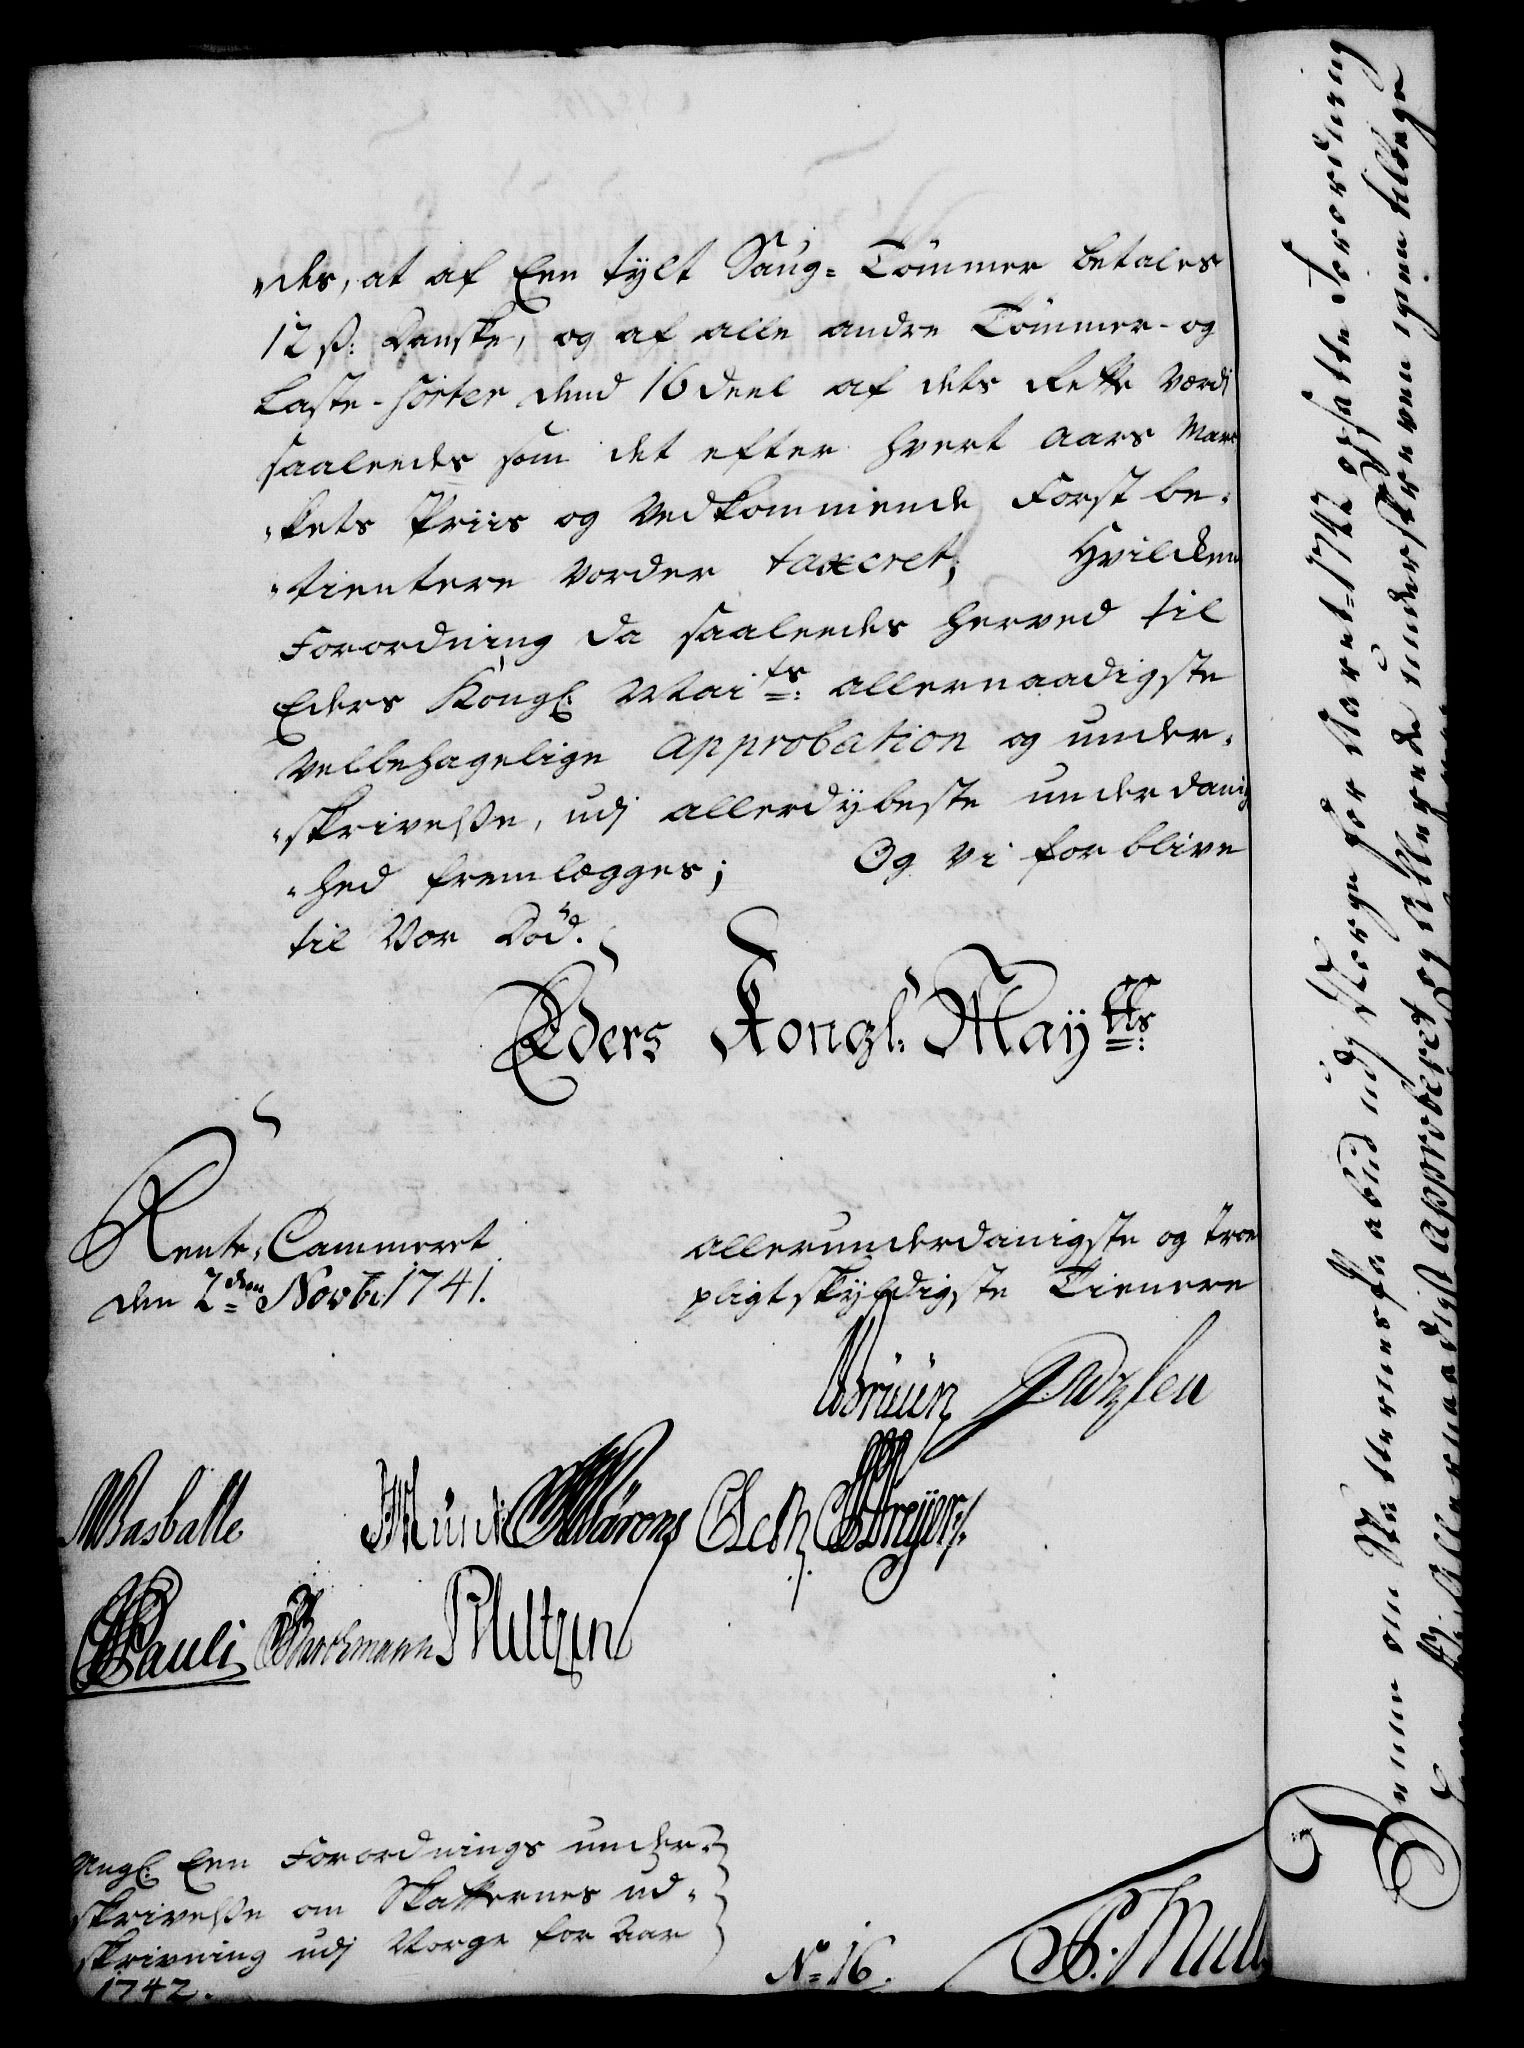 "des, at af Een tylt Saug-Tömmer betales
12 ß: Danske, og af alle andre Tömmer- og
Laste-sorter dend 16 deel af dets Rette Værdi
saaleedes som det efter hvert Aars Mar
"kets Priis og Vedkommende Forst be-
"tientere vorder taxeret; Hvilken
Forordning da saaleedes herved til
Eders Kongl: Mai ts: allernaadigste
Velbehagelige Approbation og under-
"skrivelße, udj allerdybeste underdanig
"hed fremlægges; Og Vi forblive
til Vor Död.
Eders Kongl: Maytts:
Rente-Cammeret
den 2den Novbr 1741.
allerunderdanigste og troe
pligtskyldigste Tienere
Basballe
CLeth Dreyer
Pauli Meltzen
Angl: Een Forordnings under-
skrivelße om Skatternes ud-
skrivning udj Norge for Aar
1742.
No= 16.
Mull
Denne om Skatternes Paabud udj Norge for Aaret 1742 opsatte Forordning
allernaadigst Approberet og allerede underskreven igien tilbage